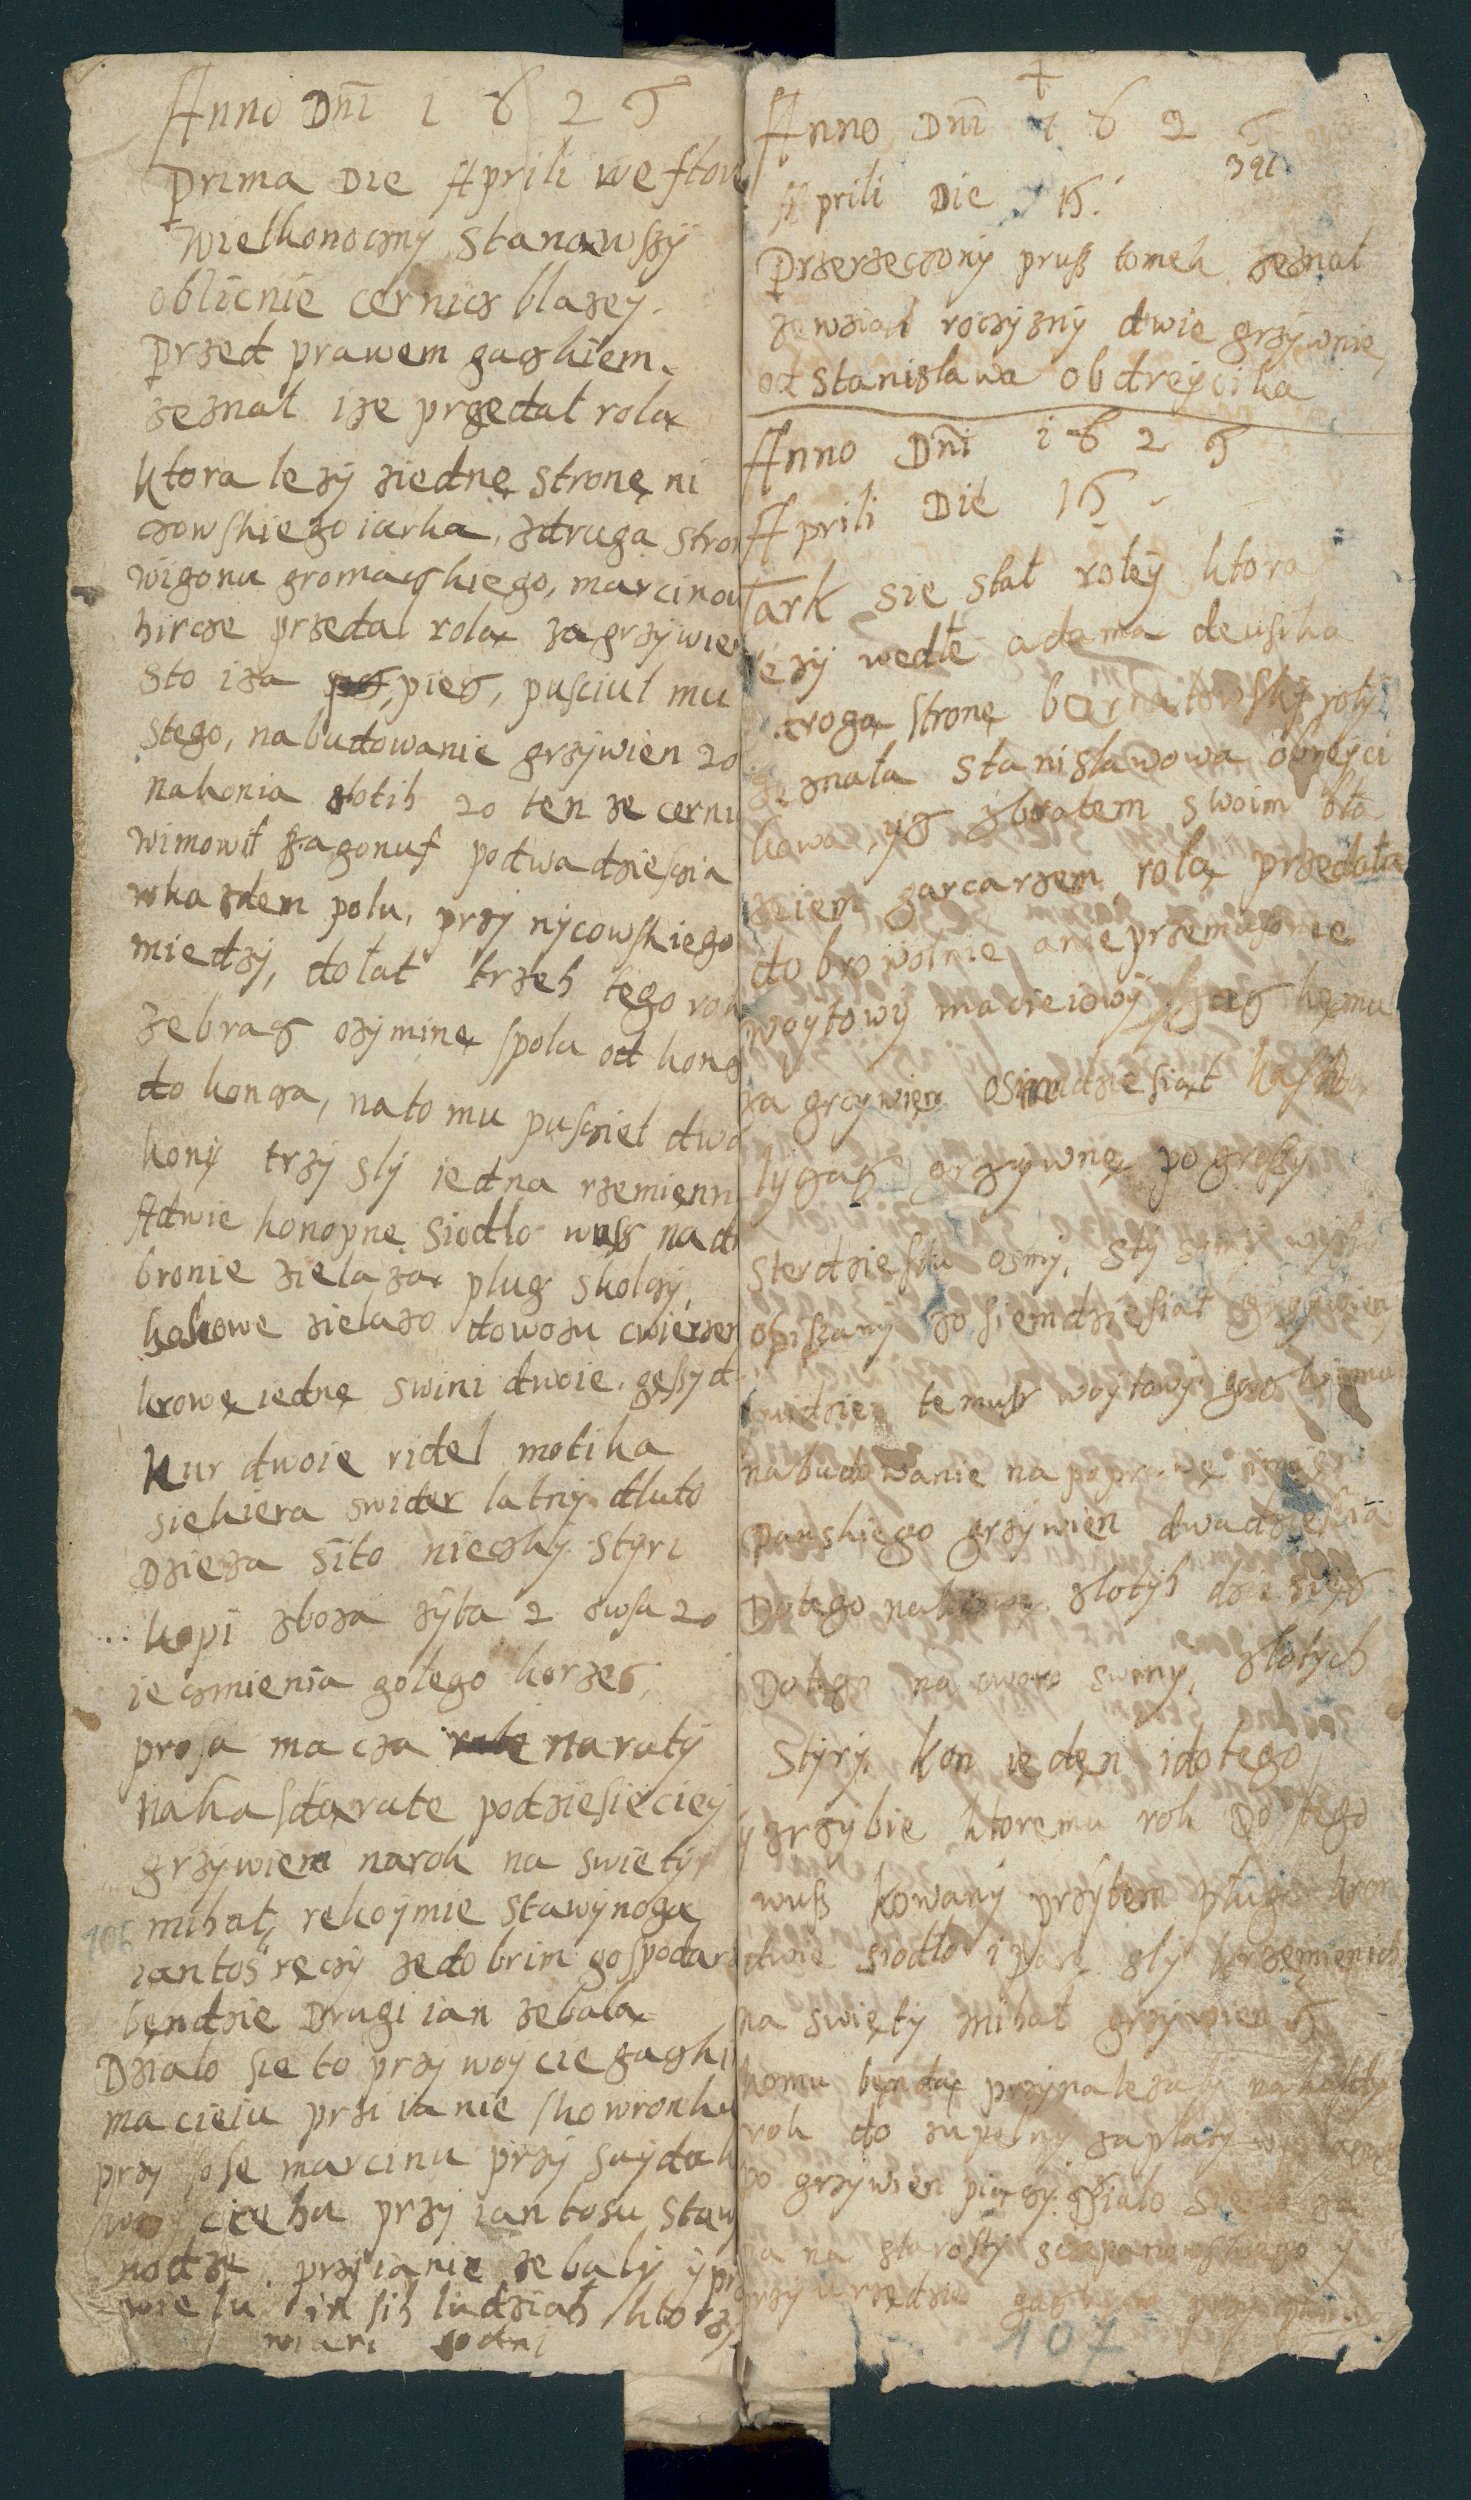 Anno Dnī 1 6 2 5
Prima Die Aprili we ftore
wielkonoczny stanawszÿ
oblicnie cernich blazey.
Przed prawem gackiem.
zeznał ize przedał rola
ktora lezÿ ziednę stronę ni
czowskiego iarka, zdruga stron
wigonu gromackiego, marcinow
hircze przedal rola za grzÿwien
sto iza pięc, pusciul mu
stego, nabudowanie grzÿwien 20
nakonia złotih 20 ten ze cerni
wimowił zagonuf podwadziescia
wkazdem polu, przÿ nÿcowskiego
miedzÿ, dolat trzeh tego rok
zebrac ozÿminę spolu od konc
do konca, nato mu pusciel dwa
konÿ trzÿ slÿ iedna rzemięnn
A dwie konopne siodło wuss nad
bronie ziela za plug skolczÿ,
kakowe zielazo dowozu cwierzen
krowę iednę swini dwoie gęsÿ d
kur dwoie ridel motika
siekiera swider latnÿ dłuto
Dzieza sito niedzkÿ stÿri
kopi zboza zÿta 2 owsa 20
ięczmienia gołego korzec,
prosa macza naratÿ
nakasdarate podziesięcieÿ
grzÿwien narok na swietÿ
mihał, rekoÿmie stawÿnoga
iantos ręczÿ zedobrim gospodarz
bendzie Drugi ian zebala
Działo sie to przÿ woÿcie gacki
macieiu przi ianie skowronku
przÿ sose marcinu przÿ suÿdak
cięhu przÿ iantosu staw
nodze. przÿ ianie zebalÿ ÿ pr
wielu insih ludziah ktorzÿ
wiari godni
106
Anno Dnī 1 6 2 5
391
Aprili Die 15.
Przerzeczonÿ pruss tomek zeznał
zewział roczÿznÿ dwie grzÿwnie
od stanisława obdreÿcika
Anno Dnī 1 6 2 5
Aprili Die 15
Tark sie stał rolej ktora
lezÿ wedle adama deusika
droga stronę bernatowskÿ rolÿ
zeznała stanisławowa obreÿci
kowa, ÿs zbratem swoim bła
zeiem garcarzem rola przedała
dobrowolnie anieprzemusonie
woÿtowÿ macieiowÿ gackemu
za grzÿwien osimdziesiat kasda
lÿgac grzÿwnę po groszÿ
sterdziestu osmÿ,
opiszanÿ zosiemdziesiat grzÿwien
temuss woÿtowÿ gackiemu
nabudowanie na poprawę
panskiego grzÿwien dwadziescia
Dotego nakrowe złotÿh dziesięc
Dotego na cworo swinÿ, złotÿch
stÿrÿ kon ieden idotego
ÿ grzÿbie ktoremu rok Do tego
wuss kowanÿ przÿtem pługi kron
dwie siodło i pare slÿ krzemienich
na swiętÿ mihał grzÿwien 5
komu będa przÿnalezałÿ nakasdÿ
rok do zupełnÿ zapłatÿ
po grzÿwien pięczÿ. Działo sie to za
pana starostÿ sczepana
przÿ urzędzie gackim przÿ
107